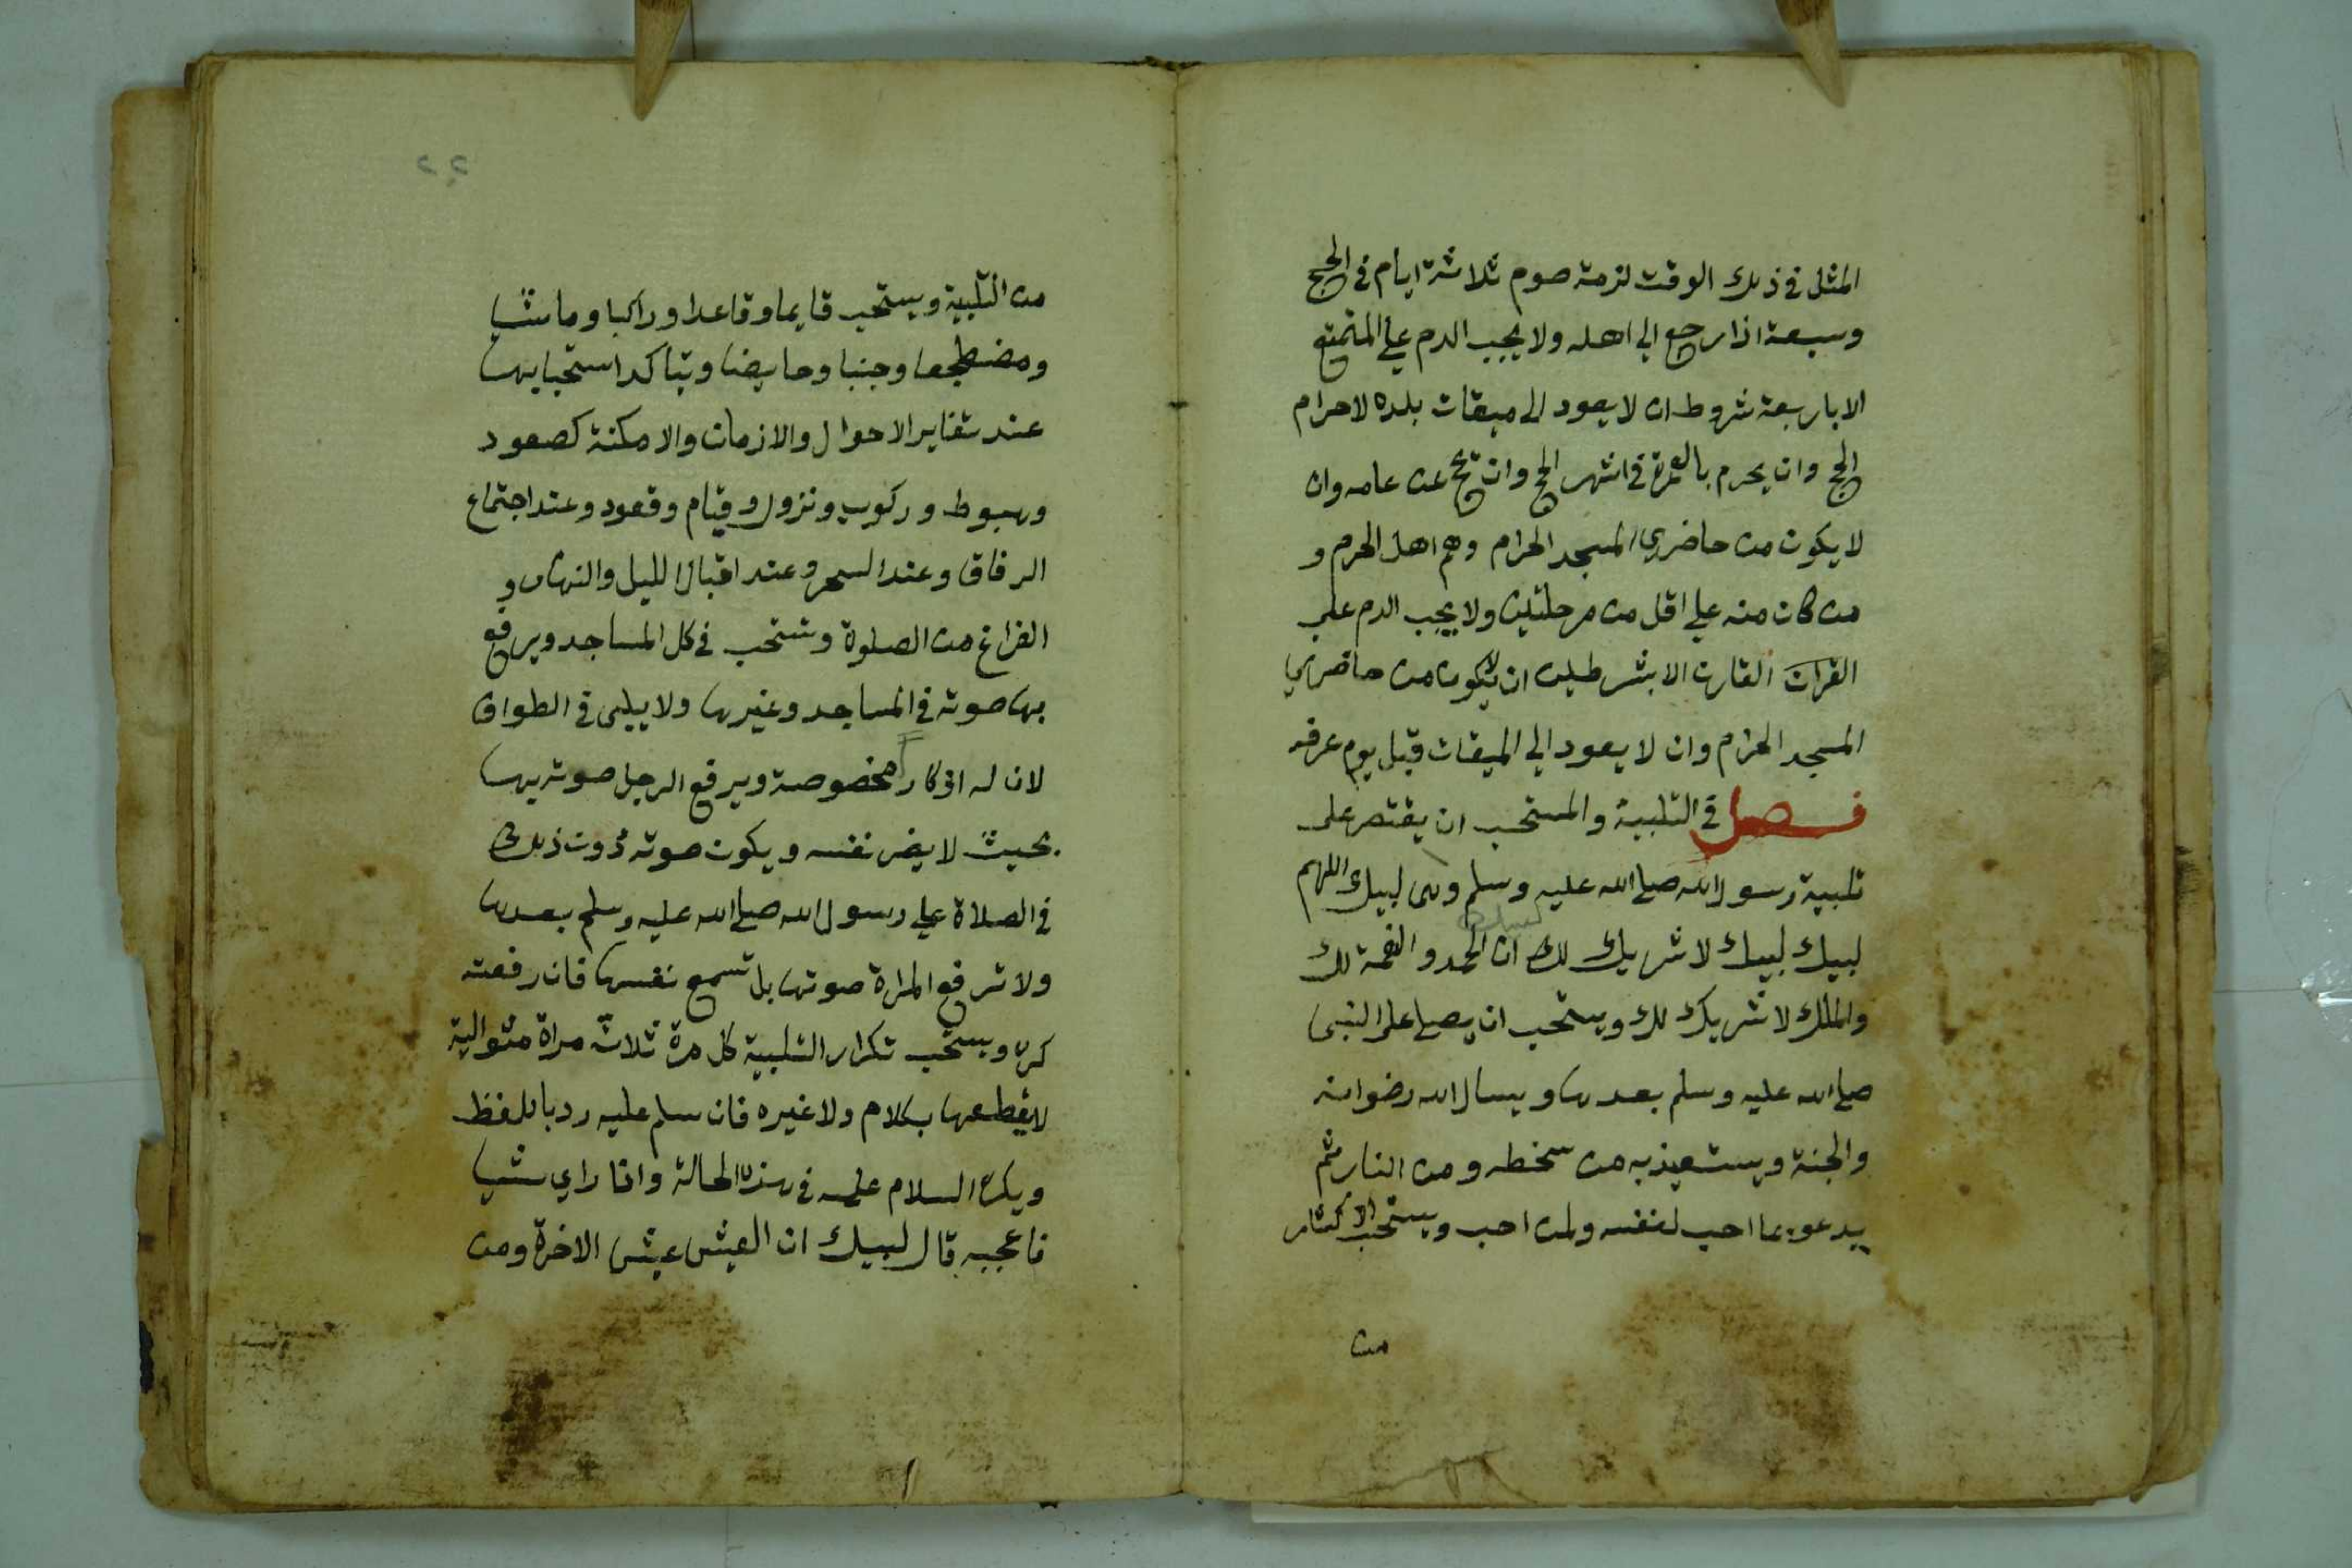 المثل في ذلك الوقت لزمه صوم ثلاثة ايام في الحج
وسبعة اذا رجع الي اهله ولا يجب الدم علي المتمتع
الا باربعة شروط ان لا يعود الى ميقات بلده لاحرام
الحج وان يحرم بالعمرة في اشهر الحج وان تحج عن عامه وان
لا يكون من حاضري المسجد الحرام وهم اهل الحرم و
من كان منه علي اقل من مرحلتين ولا يجب الدم على
القران القارن الا بشرطين ان لا يكون من حاضري
المسجد الحرام وان لا يعود الي الميقات قبل يوم عرفه
فصل في التلبية والمستحب ان يقتصر على
تلبية رسول الله صلى الله عليه وسلم وهى لبيك اللهم
لبيك
لبيك لبيك لا شريك لك ان الحمد والنعمة لك
والملك لا شريك لك ويستحب ان يصلي على النبى
صلى الله عليه وسلم بعدها ويسال الله رضوانه
والجنة ويستعيذ به من سخطه ومن النار ثم
يدعو بما احب لنفسه ولمن احب ويستحب الاكثار
من
٢٢
من التلبية ويستحب قايما وقاعدا وراكبا وماشيا
ومضطجعا وجنبا وحايضا ويتاكد استحبابها
عند تغاير الاحوال والازمان والامكنة كصعود
وهبوط وركوب ونزول وقيام وقعود وعند اجتماع
الرفاق وعند السحر وعند اقبال الليل والنهار و
الفراغ من الصلوة وتستحب في كل المساجد ويرفع
بها صوته في المساجد وغيرها ولا يلبى في الطواف
لان له اذكارا مخصوصة ويرفع الرجل صوته بها
بحيث لا يضر نفسه ويكون صوته دون ذلك
في الصلاة علي رسول الله صلى الله عليه وسلم بعدها
ولا ترفع المراة صوتها بل تسمع نفسها فان رفعته
كره ويستحب تكرار التلبية كل مرة ثلاث مراة متوالية
لا يقطعها بكلام ولا غيره فان سلم عليه رد باللفظ
ويكره السلام عليه في هذه الحالة واذا راي شيا
فاعجبه قال لبيك ان العيش عيش الاخرة ومن